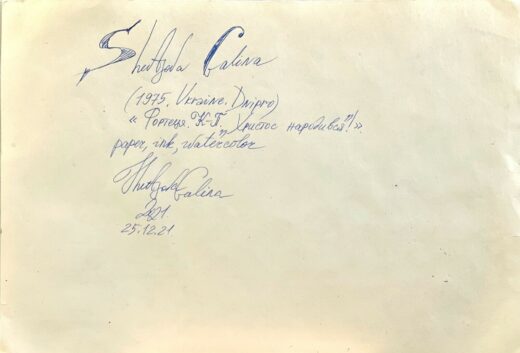 Galina
(1975. Ukraine. Dnipro)
« Фортеця. К-П. "Христос народився!" »
paper, ink, watercolor
Galina
2021.
25.12.21